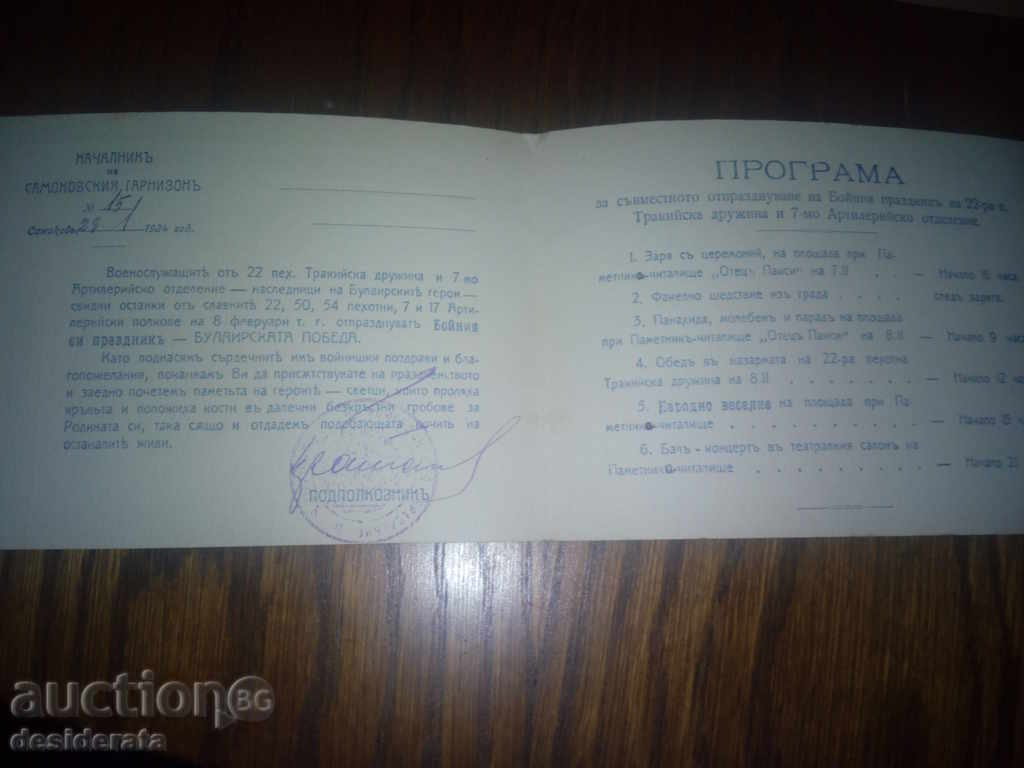 НАЧАЛНИКЪ
НА
САМОКОВСКИЯ ГАРНИЗОНЪ
№ 151
Самоковъ 29 1 1924 год.
Военослужащитѣ отъ 22 пех. Тракийска дружина и 7-мо
Артилерийско отделение — наследници на Булаирскитѣ герои —
свидни останки от славнитѣ 22, 50, 54 пехотни, 7 и 17 Арти-
лерийски полкове на 8 февруари т. г. отпразднуватъ Бойния
си праздникъ — БУЛАИРСКАТА ПОБЕДА.
Като поднасям сърдечнитѣ имъ войнишки поздрави и бла-
гопожелания, поканвамъ Ви да присѫтствувате на празденството
и заедно почетемъ паметьта на героитѣ — светци, които пролѣха
кръвьта и положиха кости въ далечни безкръстни гробове за
Родината си, така сѫщо и отдадемъ подобающата почить на
останалитѣ живи.
ПОДПОЛКОВНИКЪ
ПРОГРАМА
за съвместното отпразднуване на Бойния праздникъ на 22-ра п.
Тракийска дружина и 7-мо Артилерийско отделение.
1. Заря съ церемония, на площада при Па-
метникъ-читалище "Отецъ Паиси" на 7.II . . — Начало 18 часа
2. Факелно шедствие изъ града . . . . следъ зарята.
3. Панахида, молебенъ и парадъ на площада
при Паметникъ-читалище "Отецъ Паиси" на 8.II — Начало 9 часа
4. Обедъ въ казармата на 22-ра пехотна
Тракийска дружина на 8.II . . . . . . . . — Начало 12
5. Народно веселие на площада при Па-
метникъ-читалище . . . . . . . . . . . — Начало 15
6. Балъ - концертъ въ театралния салонъ на
Паметникъ-читалище . . . . . . . . . — Начало 21
auction BG
desiderata